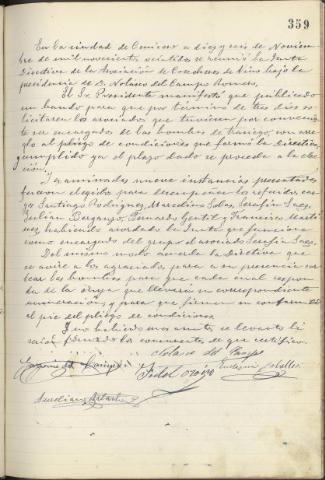 359
En la ciudad de Cenicero a diez y seis de Noviem
bre de mil novecientos veintidos se reunió la Junta
Directiva de la Asociación de Cosecheros de vino bajo la
presidencia de D. Nolasco del Campo
El Sr. Presidente manifestó que publicado
un bando para que por término de tres dias so
licitaren los asociados que tuvieren por convenien
te ser encargados de las bombas de trasiego, con arre
glo al pliego de condiciones que formó la directiva,
cumplido ya el plazo debe se proceda a la elec
ción.
Examinadas nueve instancias presentadas
fueron elegidos para desempeñar los referidos car
gos Santiago Rodriguez, Marcelino Salas, Serafin Saez,
Julian Berganzo, Gentil y Francisco Marti
nez, habiendo acordado la Junta que funcione
como encargado del grupo el asociado Serafin Saez.
Del mismo modo acuerda la Directiva que
se avise a los agraciados para a su presencia sor
tear las bombas para que cada cual respon
da de la suya que llevará su correspondiente
numeración, y para que firmen su conformidad
al pie del pliego de condiciones.
Y no habiendo mas asuntos se levantó la
sesión firmando los concurrentes de que certifico.
Nolasco del Campo
Fidel
Aureliano